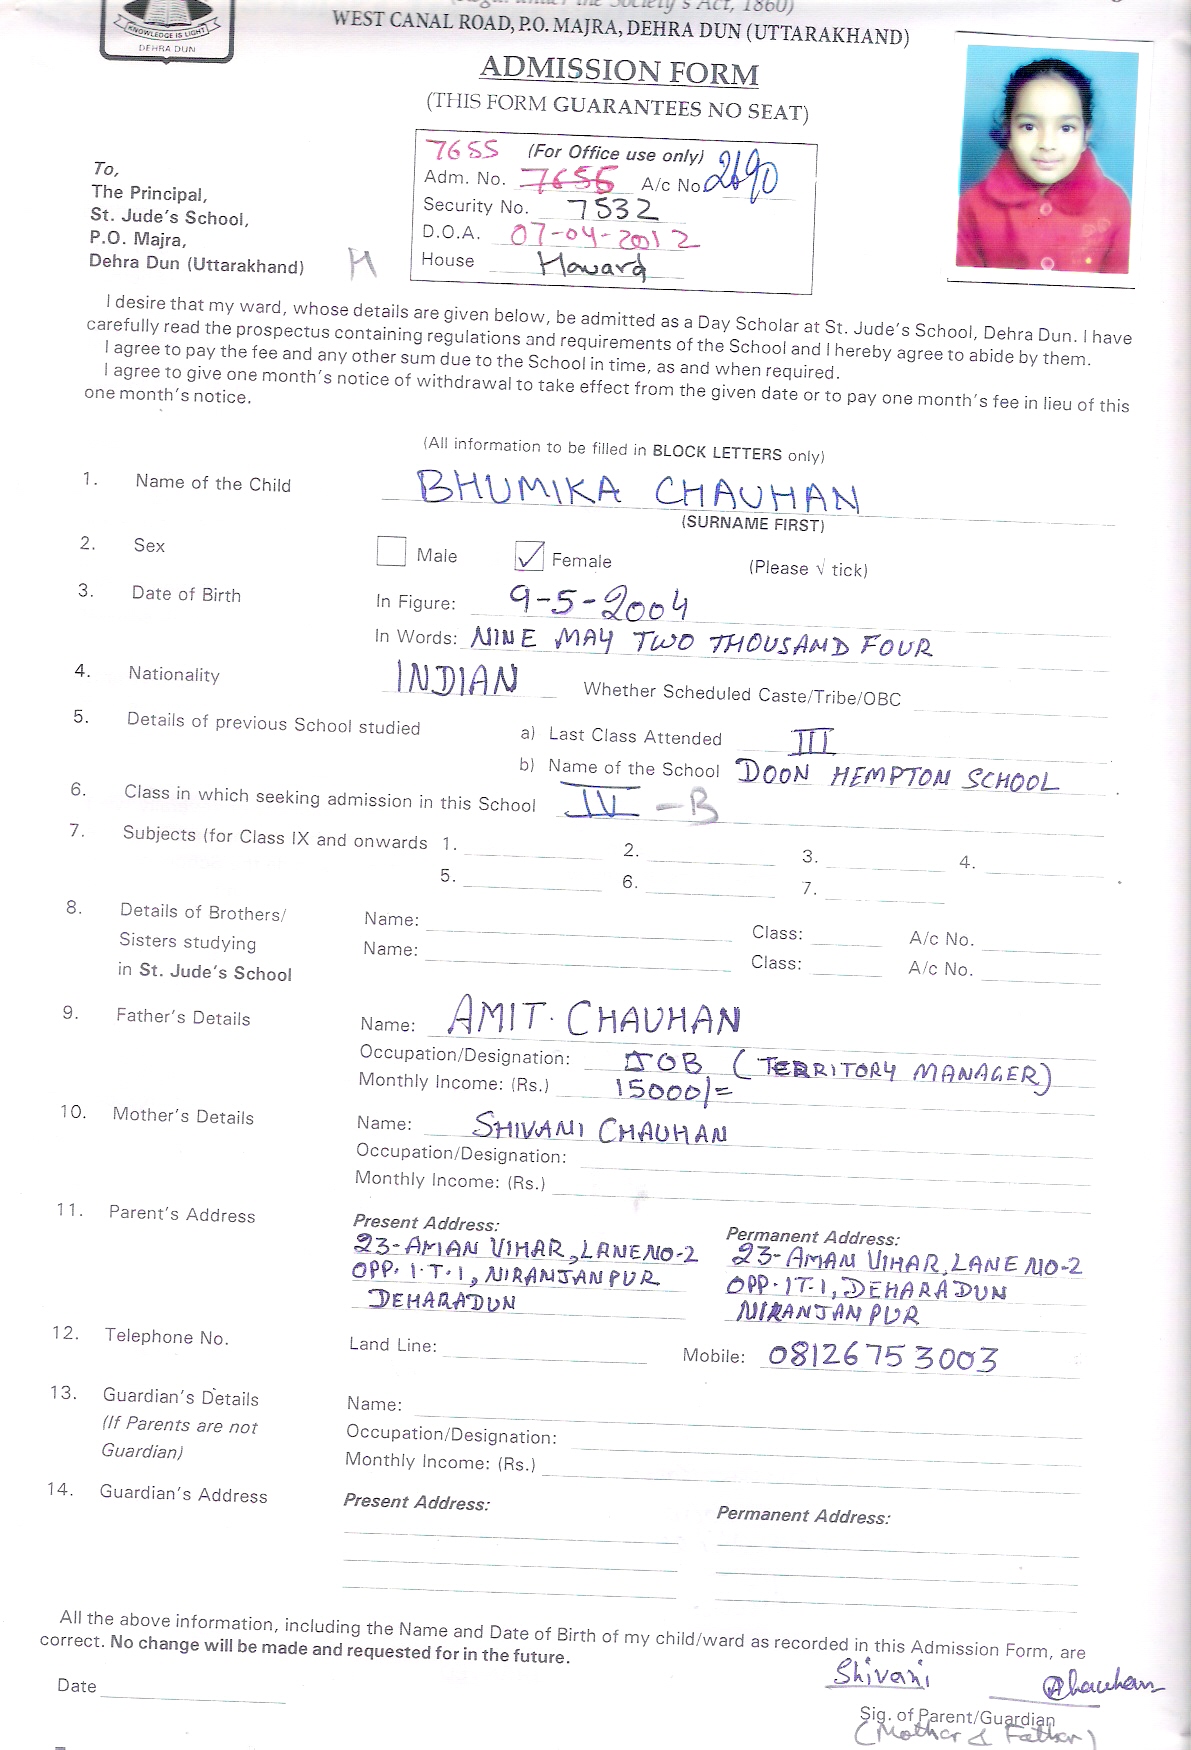 the Society's Act, 1860)
WEST CANAL ROAD, P.O. MAJRA, DEHRA DUN (UTTARAKHAND)
KNOWLEDGE IS LIGHT
DEHRA DUN
ADMISSION FORM
(THIS FORM GUARANTEES NO SEAT)
7655 (For Office use only)
Adm. No. 7656 A/c No. 2690
Security No. 7532
D.O.A. 07-04-2012
House Howard
To,
The Principal,
St. Jude's School,
P.O. Majra,
Dehra Dun (Uttarakhand) H
I desire that my ward, whose details are given below, be admitted as a Day Scholar at St. Jude's School, Dehra Dun. I have
carefully read the prospectus containing regulations and requirements of the School and I hereby agree to abide by them.
I agree to pay the fee and any other sum due to the School in time, as and when required.
I agree to give one month's notice of withdrawal to take effect from the given date or to pay one month's fee in lieu of this
one month's notice.
(All information to be filled in BLOCK LETTERS only)
1. Name of the Child BHUMIKA CHAUHAN
(SURNAME FIRST)
2. Sex Male ✓ Female (Please √ tick)
3. Date of Birth In Figure: 9-5-2004
In Words: NINE MAY TWO THOUSAND FOUR
4. Nationality INDIAN Whether Scheduled Caste/Tribe/OBC
5. Details of previous School studied a) Last Class Attended III
b) Name of the School DOON HEMPTON SCHOOL
6. Class in which seeking admission in this School IV - B
7. Subjects (for Class IX and onwards 1. 2. 3. 4.
5. 6. 7.
8. Details of Brothers/ Name: Class: A/c No.
Sisters studying Name: Class: A/c No.
in St. Jude's School
9. Father's Details Name: AMIT. CHAUHAN
Occupation/Designation: JOB (TERRITORY MANAGER)
Monthly Income: (Rs.) 15000/=
10. Mother's Details Name: SHIVANI CHAUHAN
Occupation/Designation:
Monthly Income: (Rs.)
11. Parent's Address Present Address: Permanent Address:
23-AMAN VIHAR, LANE NO-2 23-AMAN VIHAR, LANE NO-2
OPP. I.T.I, NIRANJANPUR OPP. IT.I, DEHARADUN
DEHARADUN NIRANJANPUR
12. Telephone No. Land Line: Mobile: 08126753003
13. Guardian's Details Name:
(If Parents are not Occupation/Designation:
Guardian) Monthly Income: (Rs.)
14. Guardian's Address Present Address: Permanent Address:
All the above information, including the Name and Date of Birth of my child/ward as recorded in this Admission Form, are
correct. No change will be made and requested for in the future.
Shivani AChauhan
Date
Sig. of Parent/Guardian
(Mother & Father)